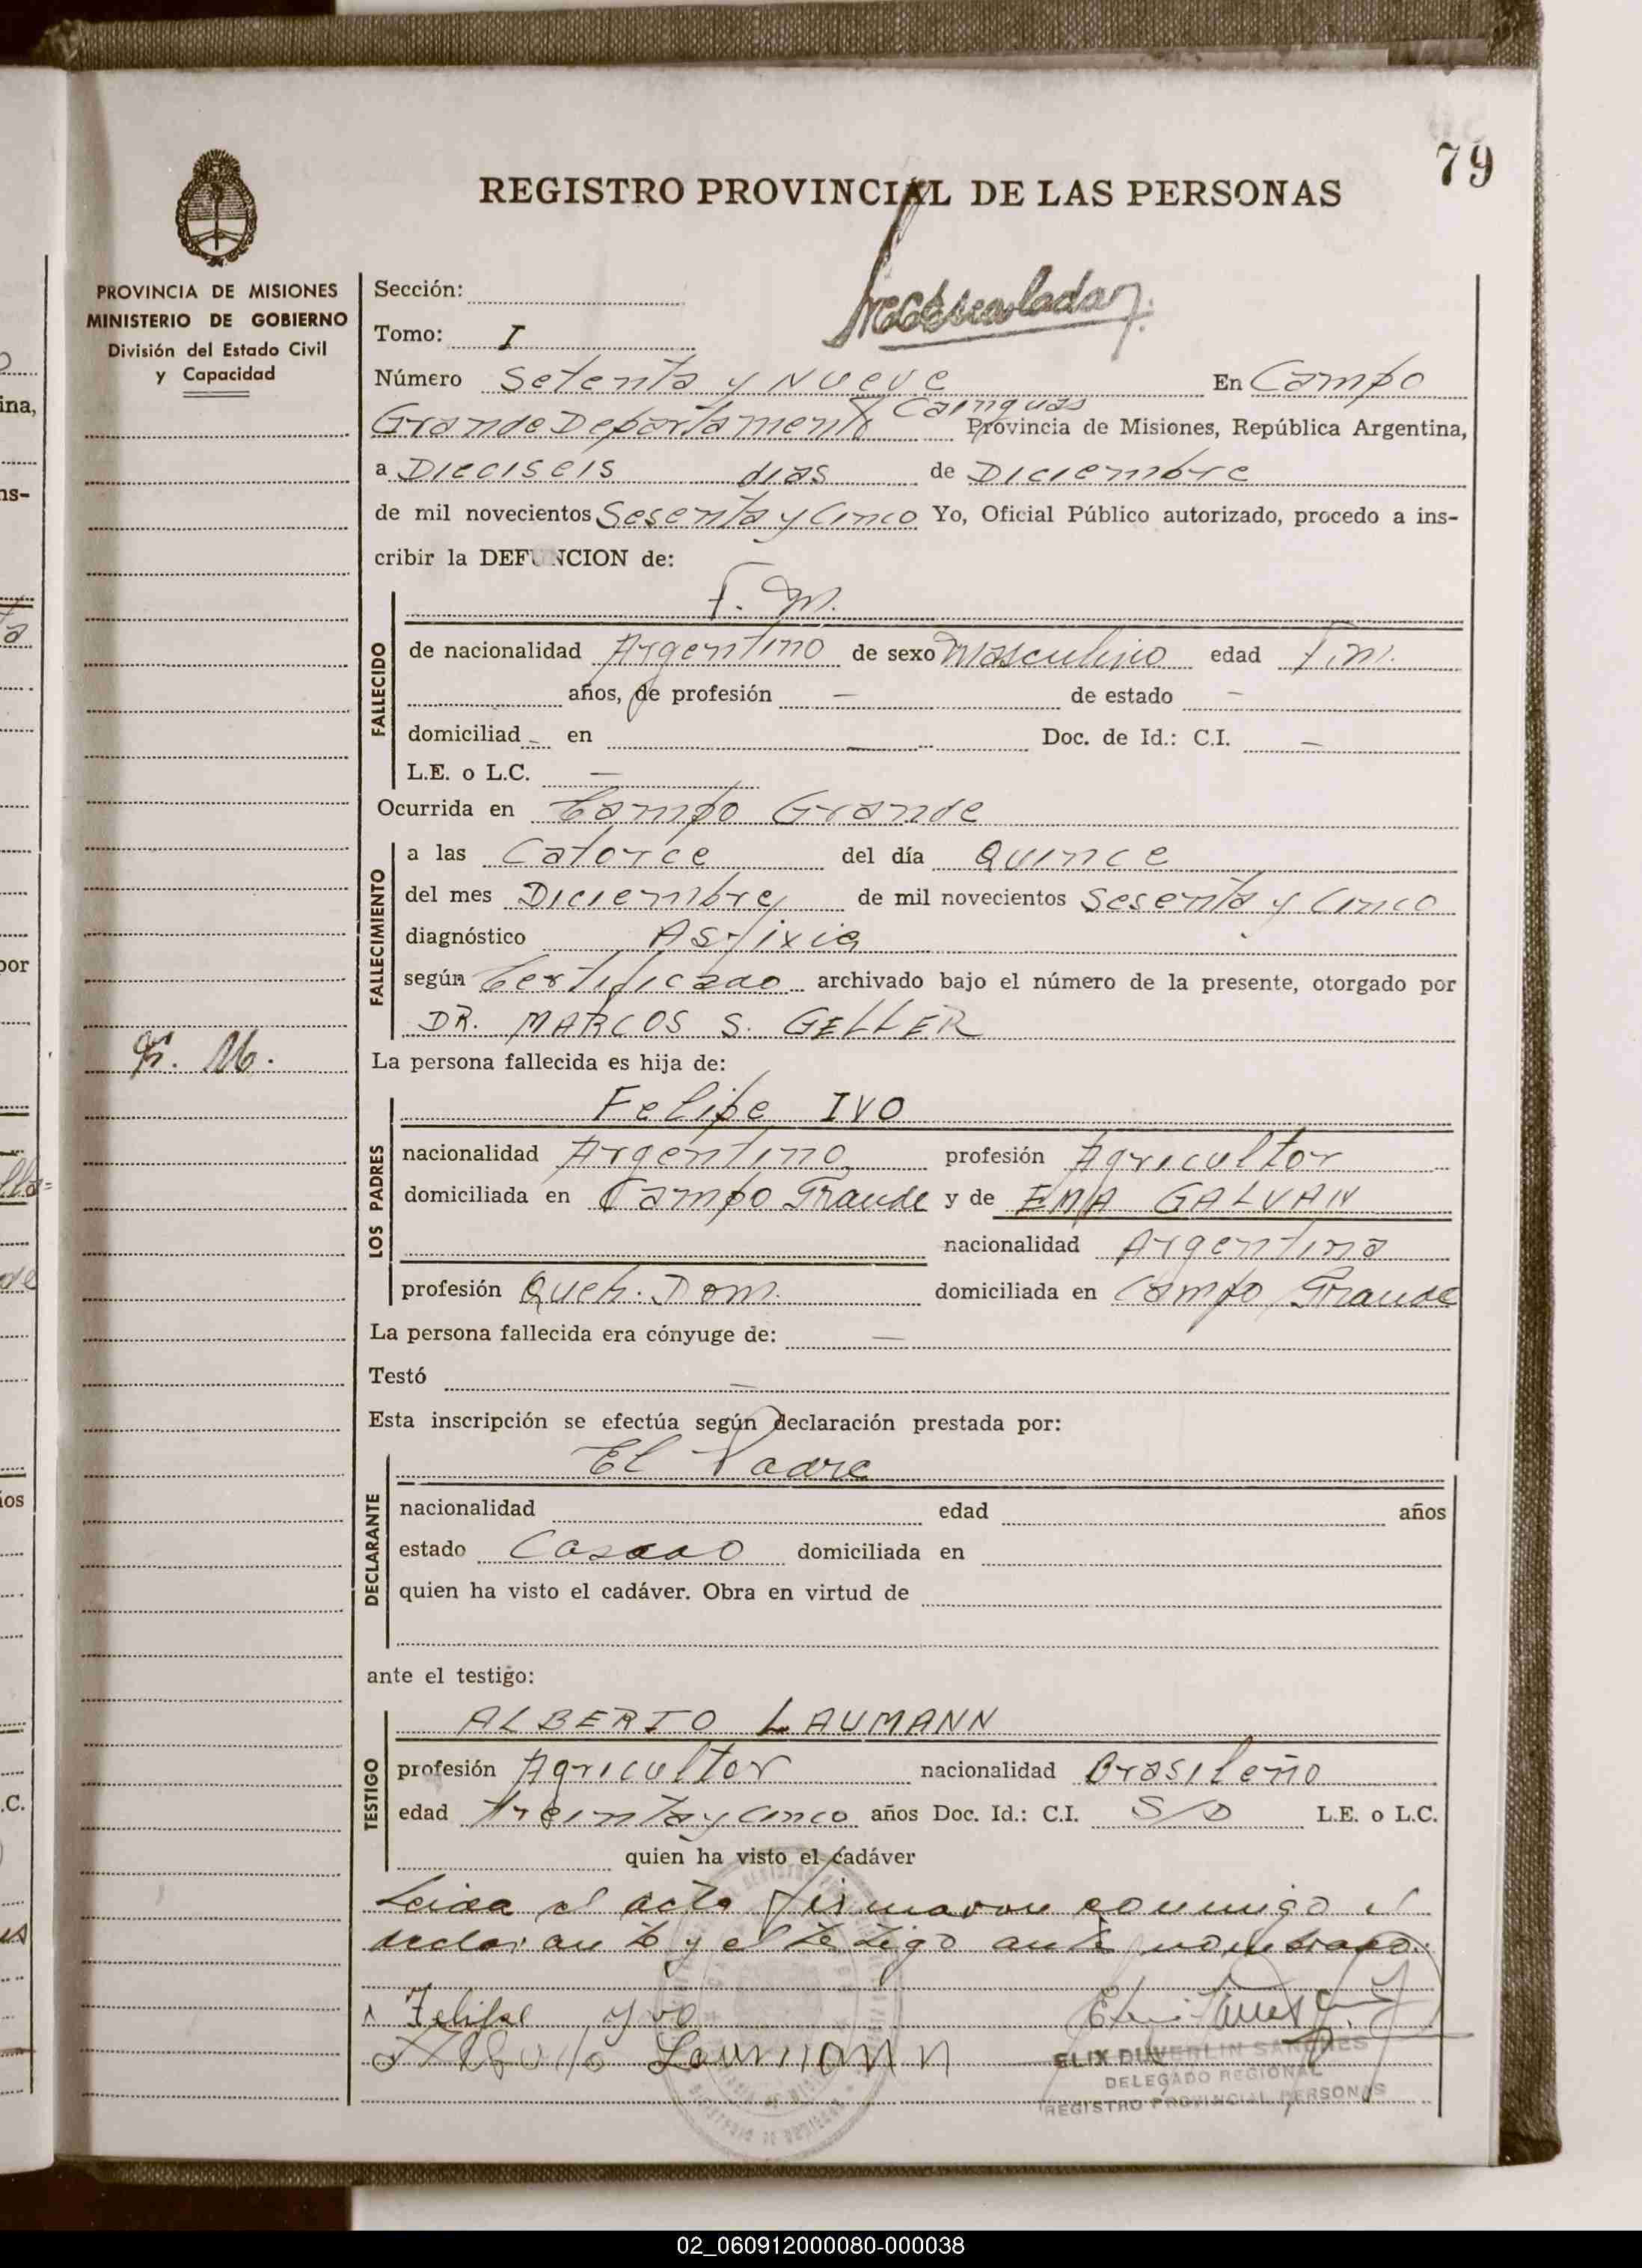 79
REGISTRO PROVINCIAL DE LAS PERSONAS
PROVINCIA DE MISIONES
MINISTERIO DE GOBIERNO
División del Estado Civil
y Capacidad
Sección:
Tomo: I
Número Setenta y Nueve En Campo
Grande Departamento Cainguas Provincia de Misiones, República Argentina,
a Dieciseis dias de Diciembre
de mil novecientos Sesenta y Cinco Yo, Oficial Público autorizado, procedo a ins-
cribir la DEFUNCION de:
F. M.
FALLECIDO
de nacionalidad Argentino de sexo Masculino edad F.M.
años, de profesión — de estado —
domiciliad - en — Doc. de Id.: C.I. —
L.E. o L.C. —
Ocurrida en Campo Grande
FALLECIMIENTO
a las Catorce del día Quince
del mes Diciembre de mil novecientos Sesenta y Cinco
diagnóstico Asfixia
según Certificado archivado bajo el número de la presente, otorgado por
DR. MARCOS S. GELLER
F. M.
La persona fallecida es hija de:
LOS PADRES
Felipe IVO
nacionalidad Argentino profesión Agricultor
domiciliada en Campo Grande y de EMA GALVAN
nacionalidad Argentina
profesión Queh. Dom. domiciliada en Campo Grande
La persona fallecida era cónyuge de: —
Testó —
Esta inscripción se efectúa según declaración prestada por:
DECLARANTE
El Padre
nacionalidad edad años
estado Casado domiciliada en
quien ha visto el cadáver. Obra en virtud de
ante el testigo:
TESTIGO
ALBERTO LAUMANN
profesión Agricultor nacionalidad Brasileño
edad treinta y cinco años Doc. Id.: C.I. S/D L.E. o L.C.
quien ha visto el cadáver
Leida el acta firmaron conmigo el
declarante y el testigo ante nombrado.
Felipe Yvo
Laumann
ELIX DUVERLIN SANCHES
DELEGADO REGIONAL
REGISTRO PROVINCIAL PERSONAS
02_060912000080-000038